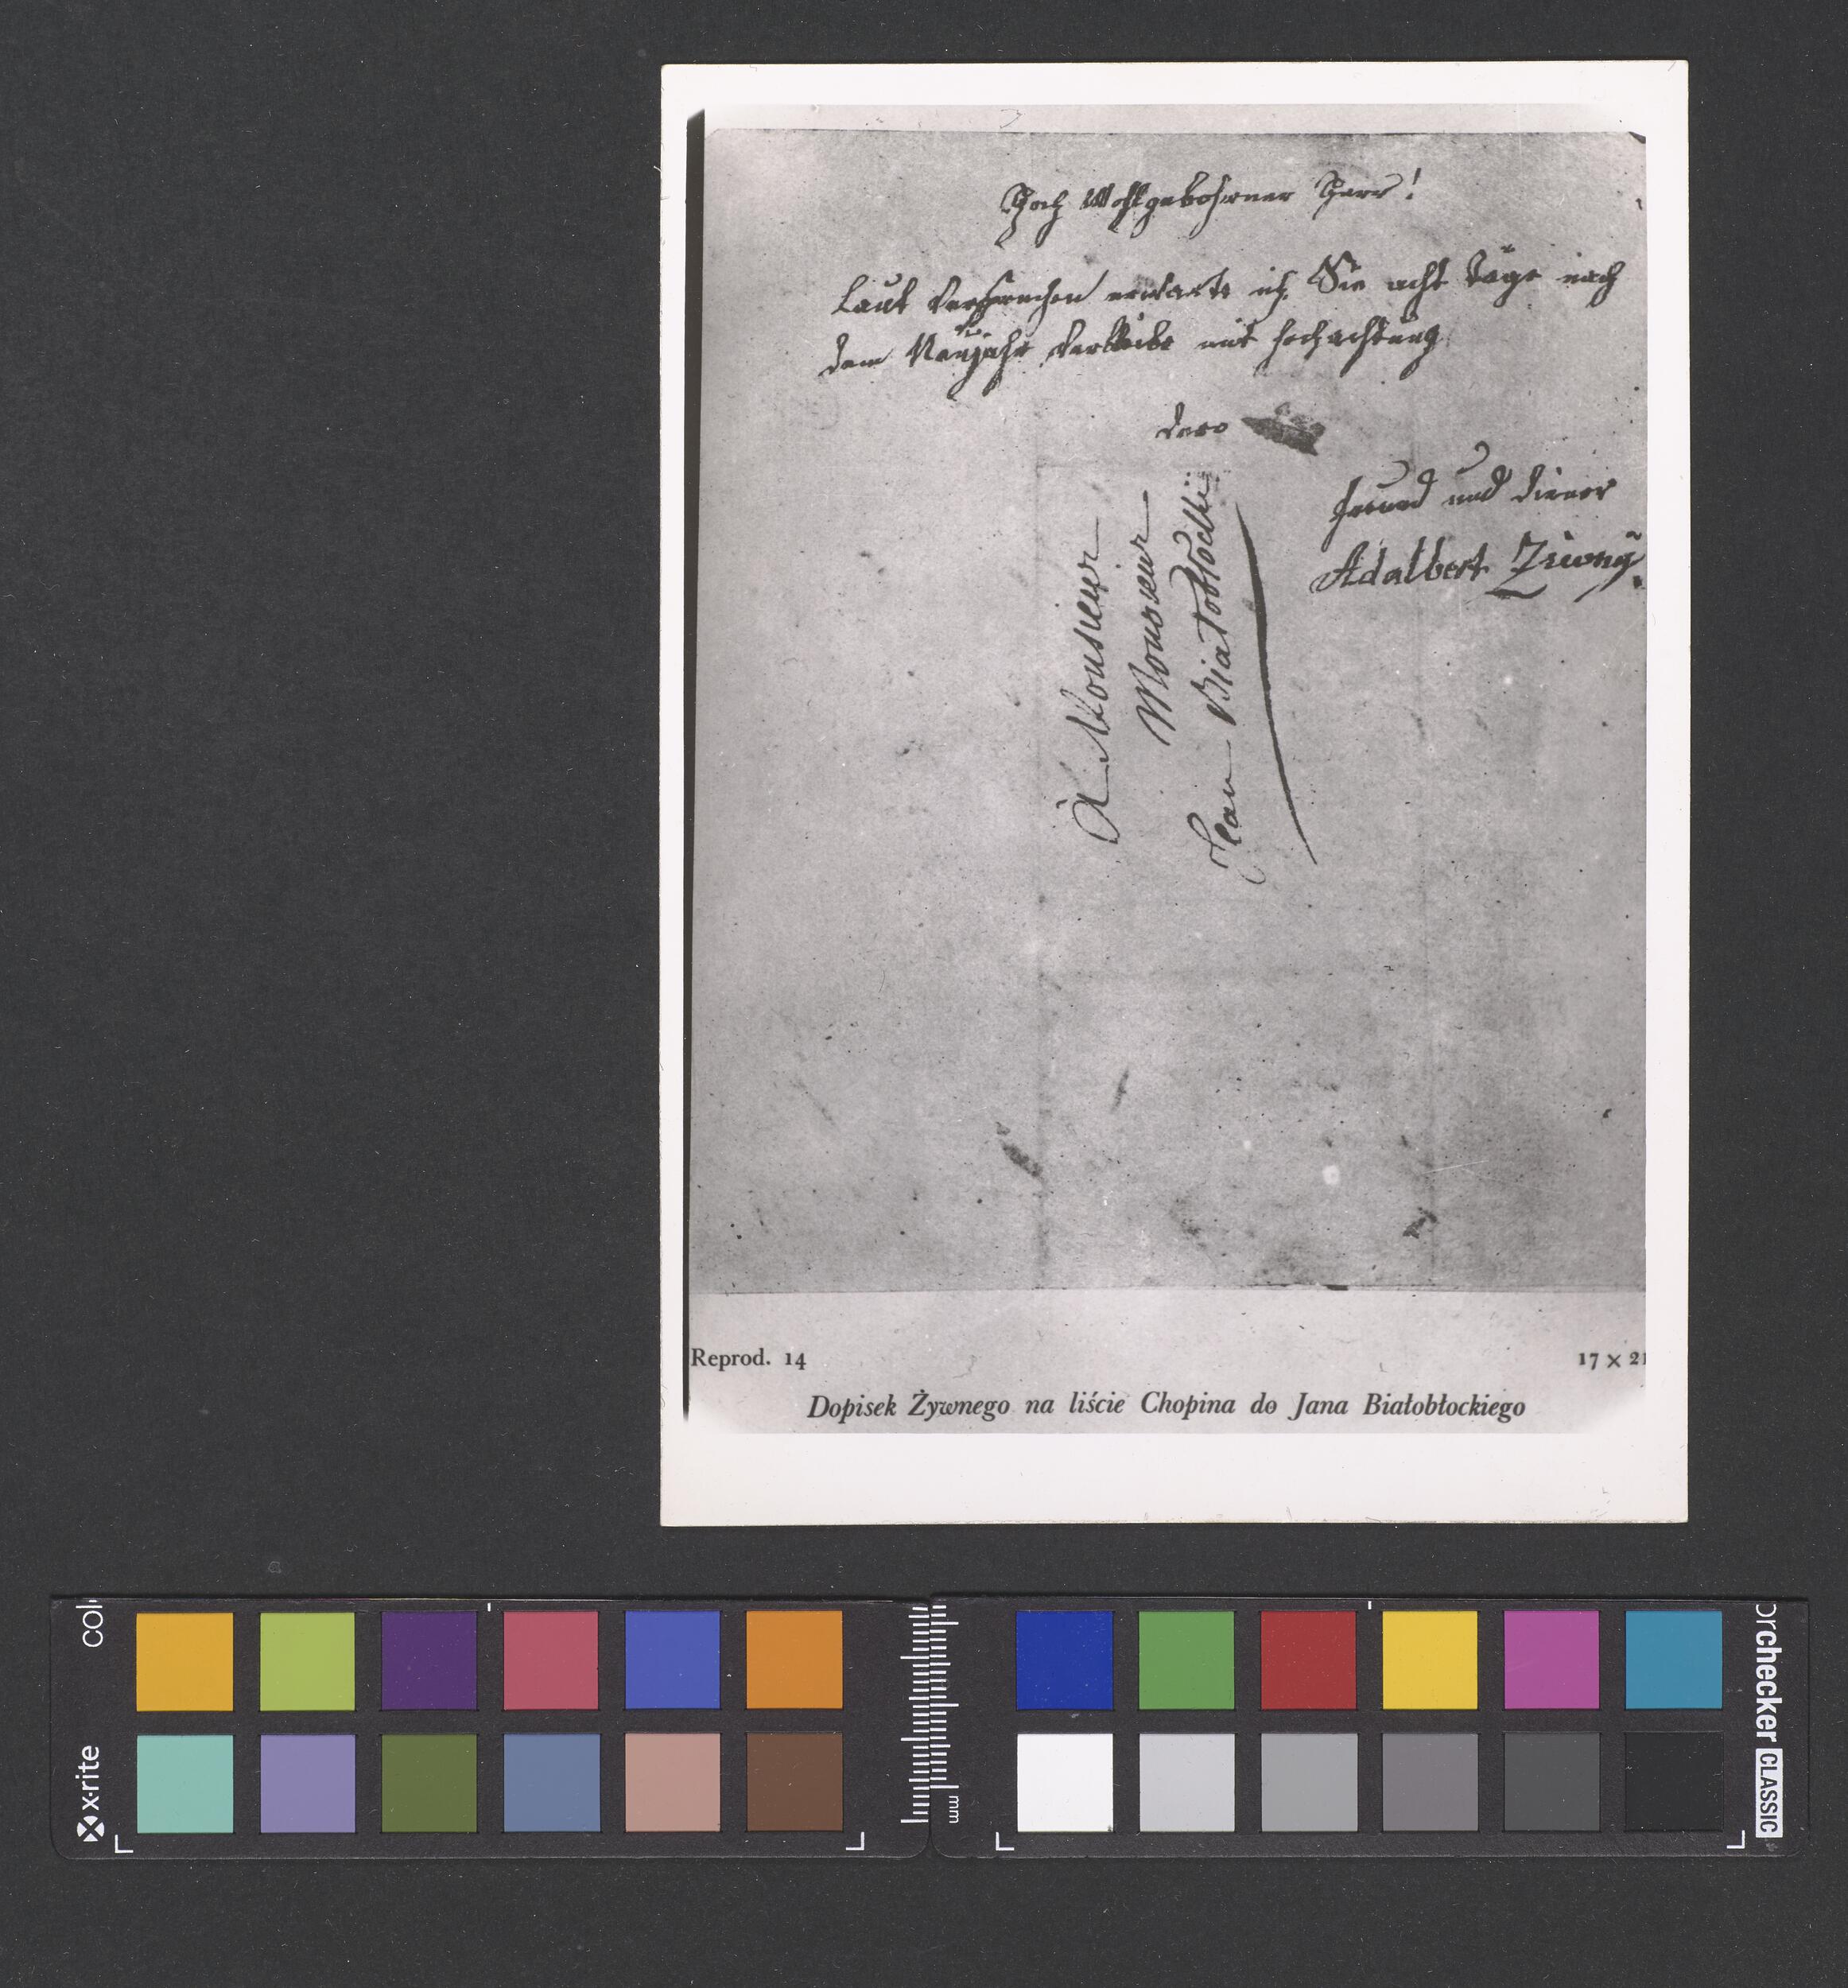 Hoch Wohlgebohrner Herr!
Laut Versprechen erwarte ich Sie acht Täge nach
dem Neujahr verbleibe mit hochachtung
dero
freund und diener
Adalbert Ziwnÿ.
à Monsieur
Monsieur
Jean Białobłocki
Reprod. 14
17 × 21
Dopisek Żywnego na liście Chopina do Jana Białobłockiego
x-rite
col
mm
orchecker CLASSIC